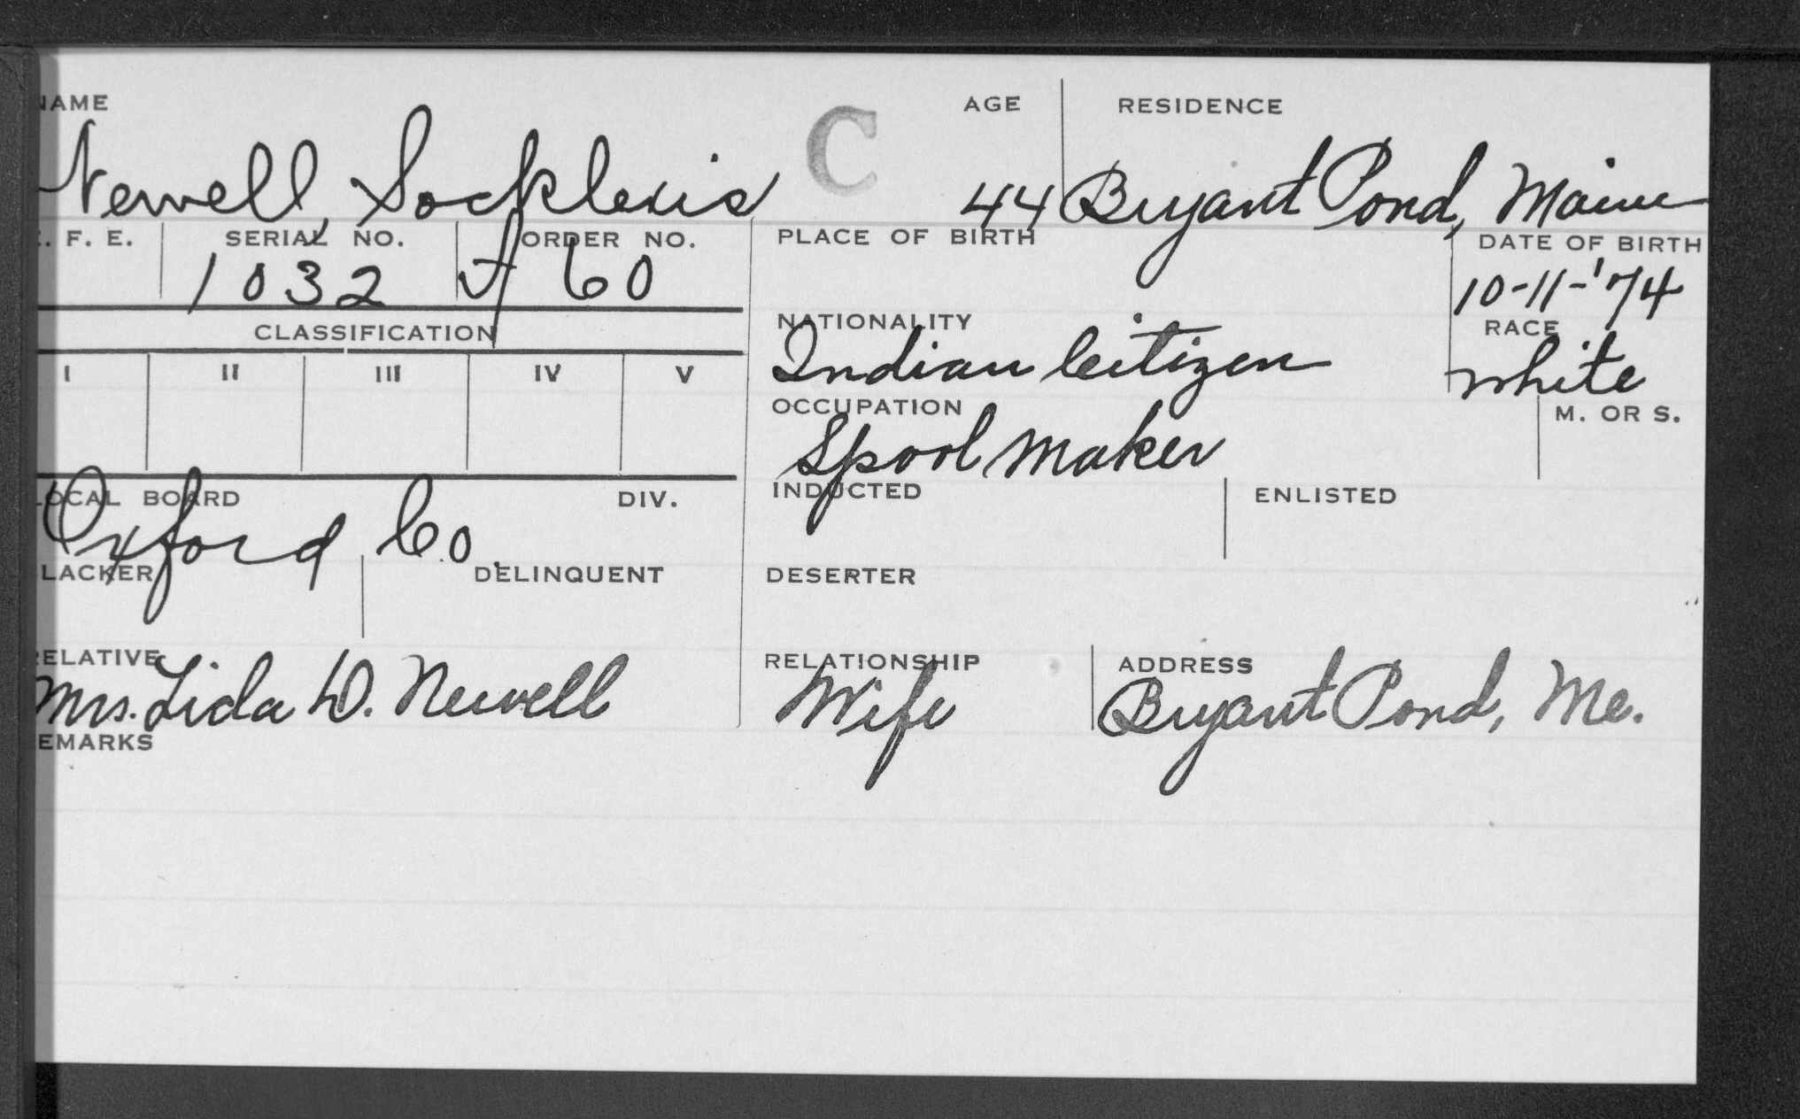 NAME C AGE RESIDENCE
Newell, Socklexis 44 Bryant Pond, Maine
. F. E. SERIAL NO. ORDER NO. PLACE OF BIRTH DATE OF BIRTH
1032 60 10-11-'74
CLASSIFICATION NATIONALITY RACE
I II III IV V Indian Citizen white
OCCUPATION M. OR S.
Spool Maker
LOCAL BOARD DIV. INDUCTED ENLISTED
Oxford Co.
SLACKER DELINQUENT DESERTER
RELATIVE RELATIONSHIP ADDRESS
Mrs. Lida D. Newell Wife Bryant Pond, Me.
REMARKS